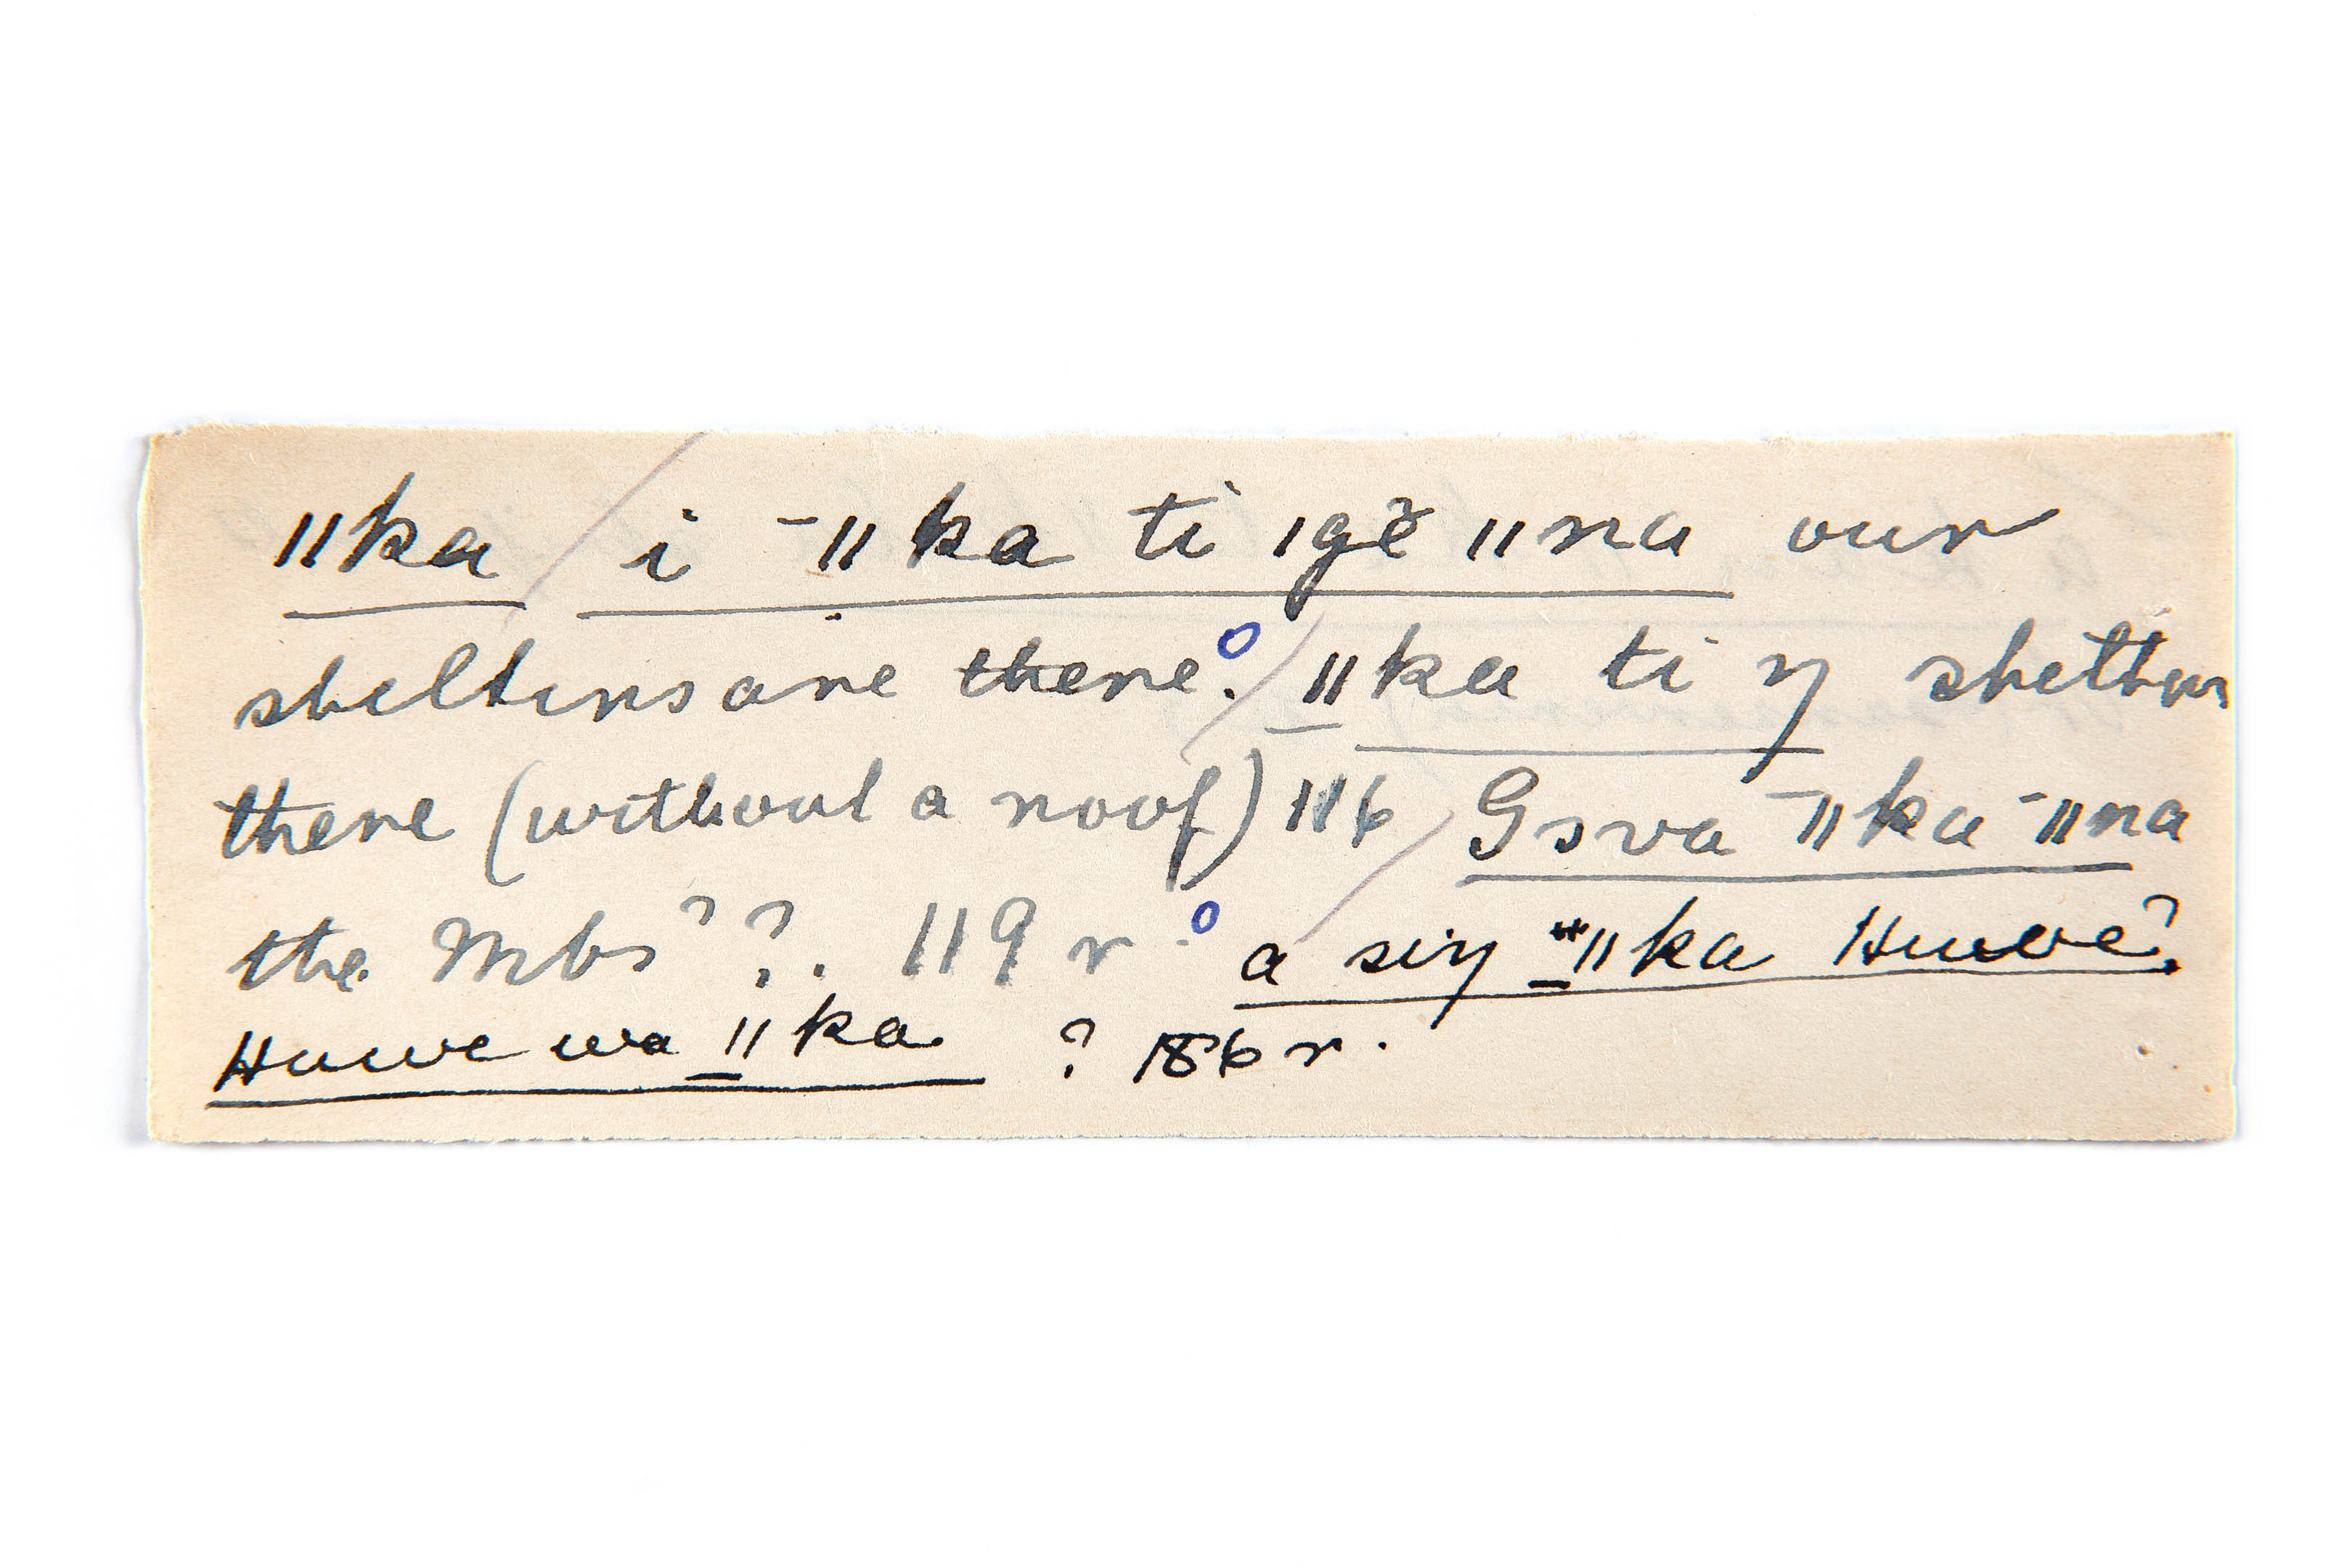 ǁka / i ¯ǁka ti ǀgĕ ǁna our
shelters are there. / ǁka ti ŋ shelter
there (without a roof) 116 / Gsva ¯ǁka ¯ǁna
the Mbs? ?. 119 r. a siŋ ǁka Huwe?
Huwe wa ǁka ? 186 r.